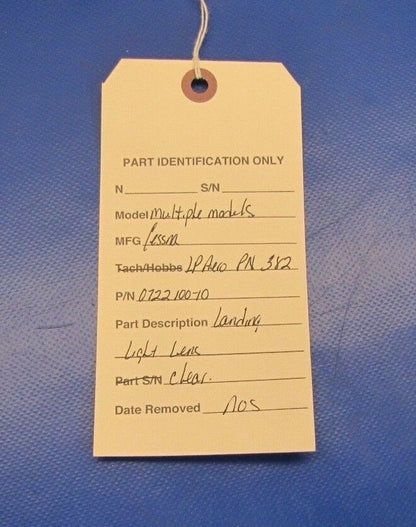 PART IDENTIFICATION ONLY
N S/N
Model multiple models
MFG Cessna
Tach/Hobbs LP Aero PN 382
P/N 0722100-10
Part Description Landing
Light Lens
Part S/N clear.
Date Removed NOS